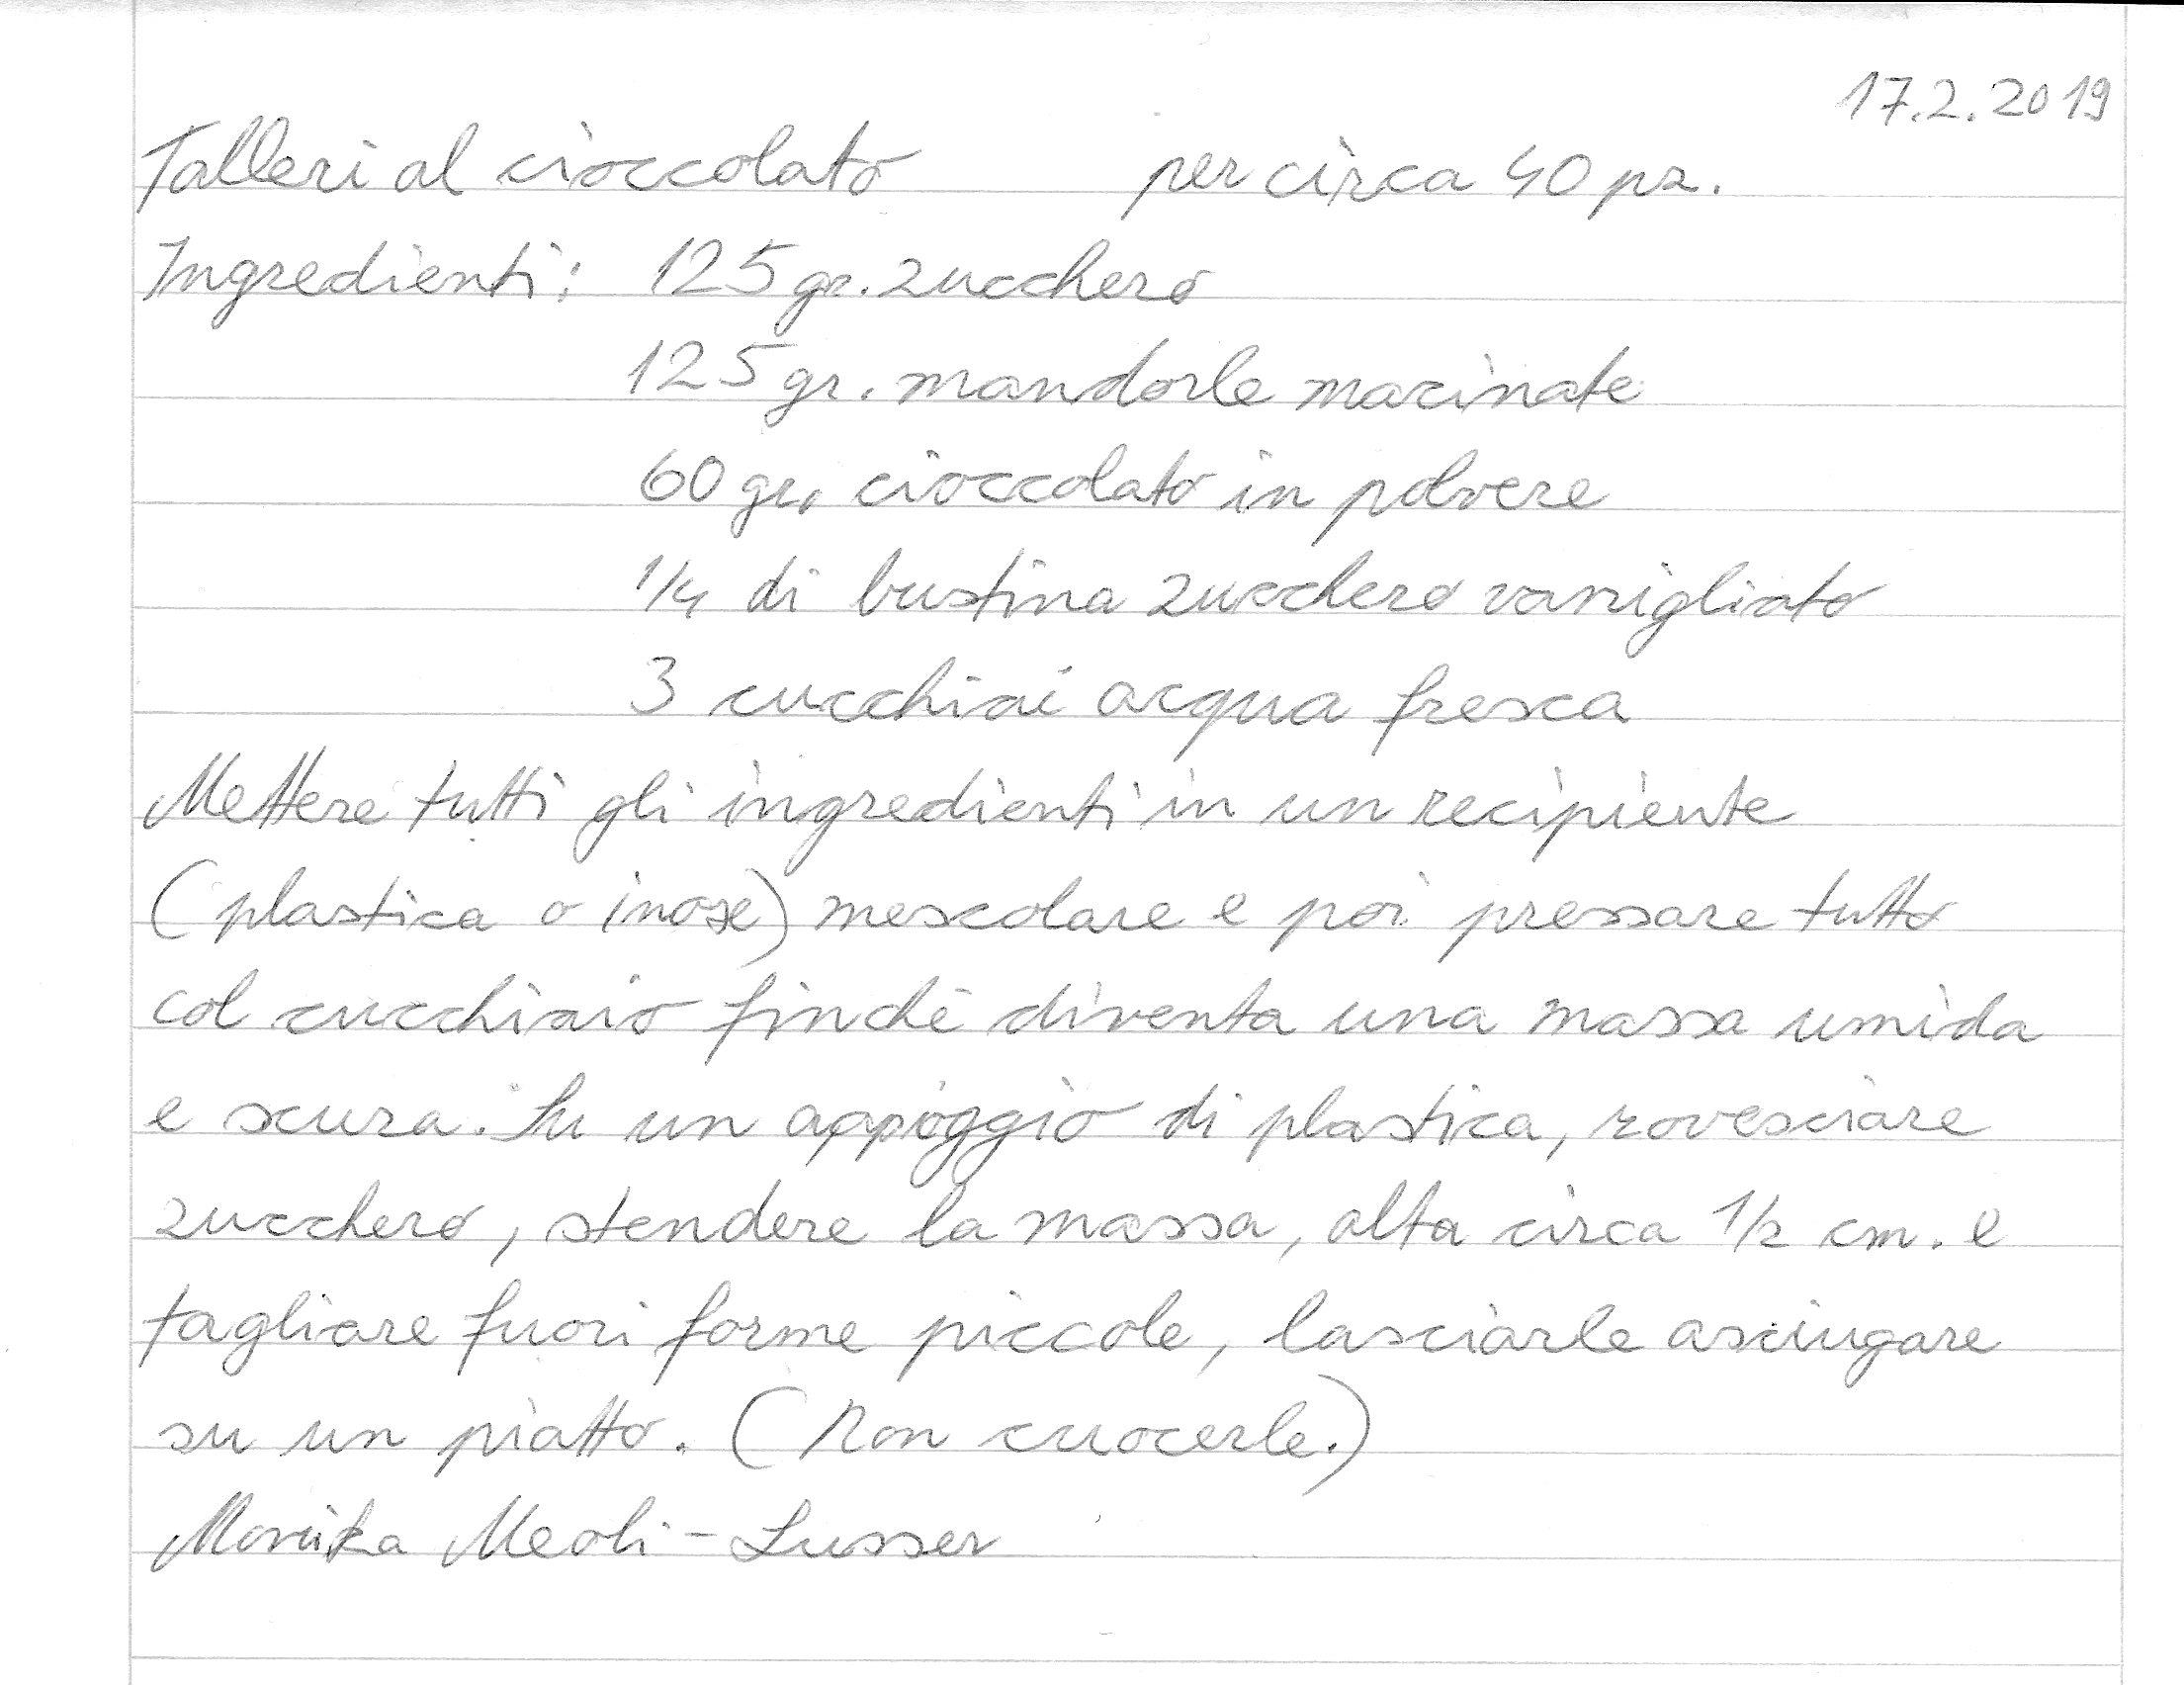 17.2.2019
Talleri al cioccolato per circa 40 pz.
Ingredienti: 125 gr. zucchero
125 gr. mandorle macinate
60 gr. cioccolato in polvere
1/4 di bustina zucchero vanigliato
3 cucchiai acqua fresca
Mettere tutti gli ingredienti in un recipiente
(plastica o inoxe) mescolare e poi pressare tutto
col cucchiaio finchè diventa una massa umida
e scura. Su un appoggio di plastica, rovesciare
zucchero, stendere la massa, alta circa 1/2 cm. e
tagliare fuori forme piccole, lasciarle asciugare
su un piatto. (Non cuocerle.)
Monika Meoli - Lusser